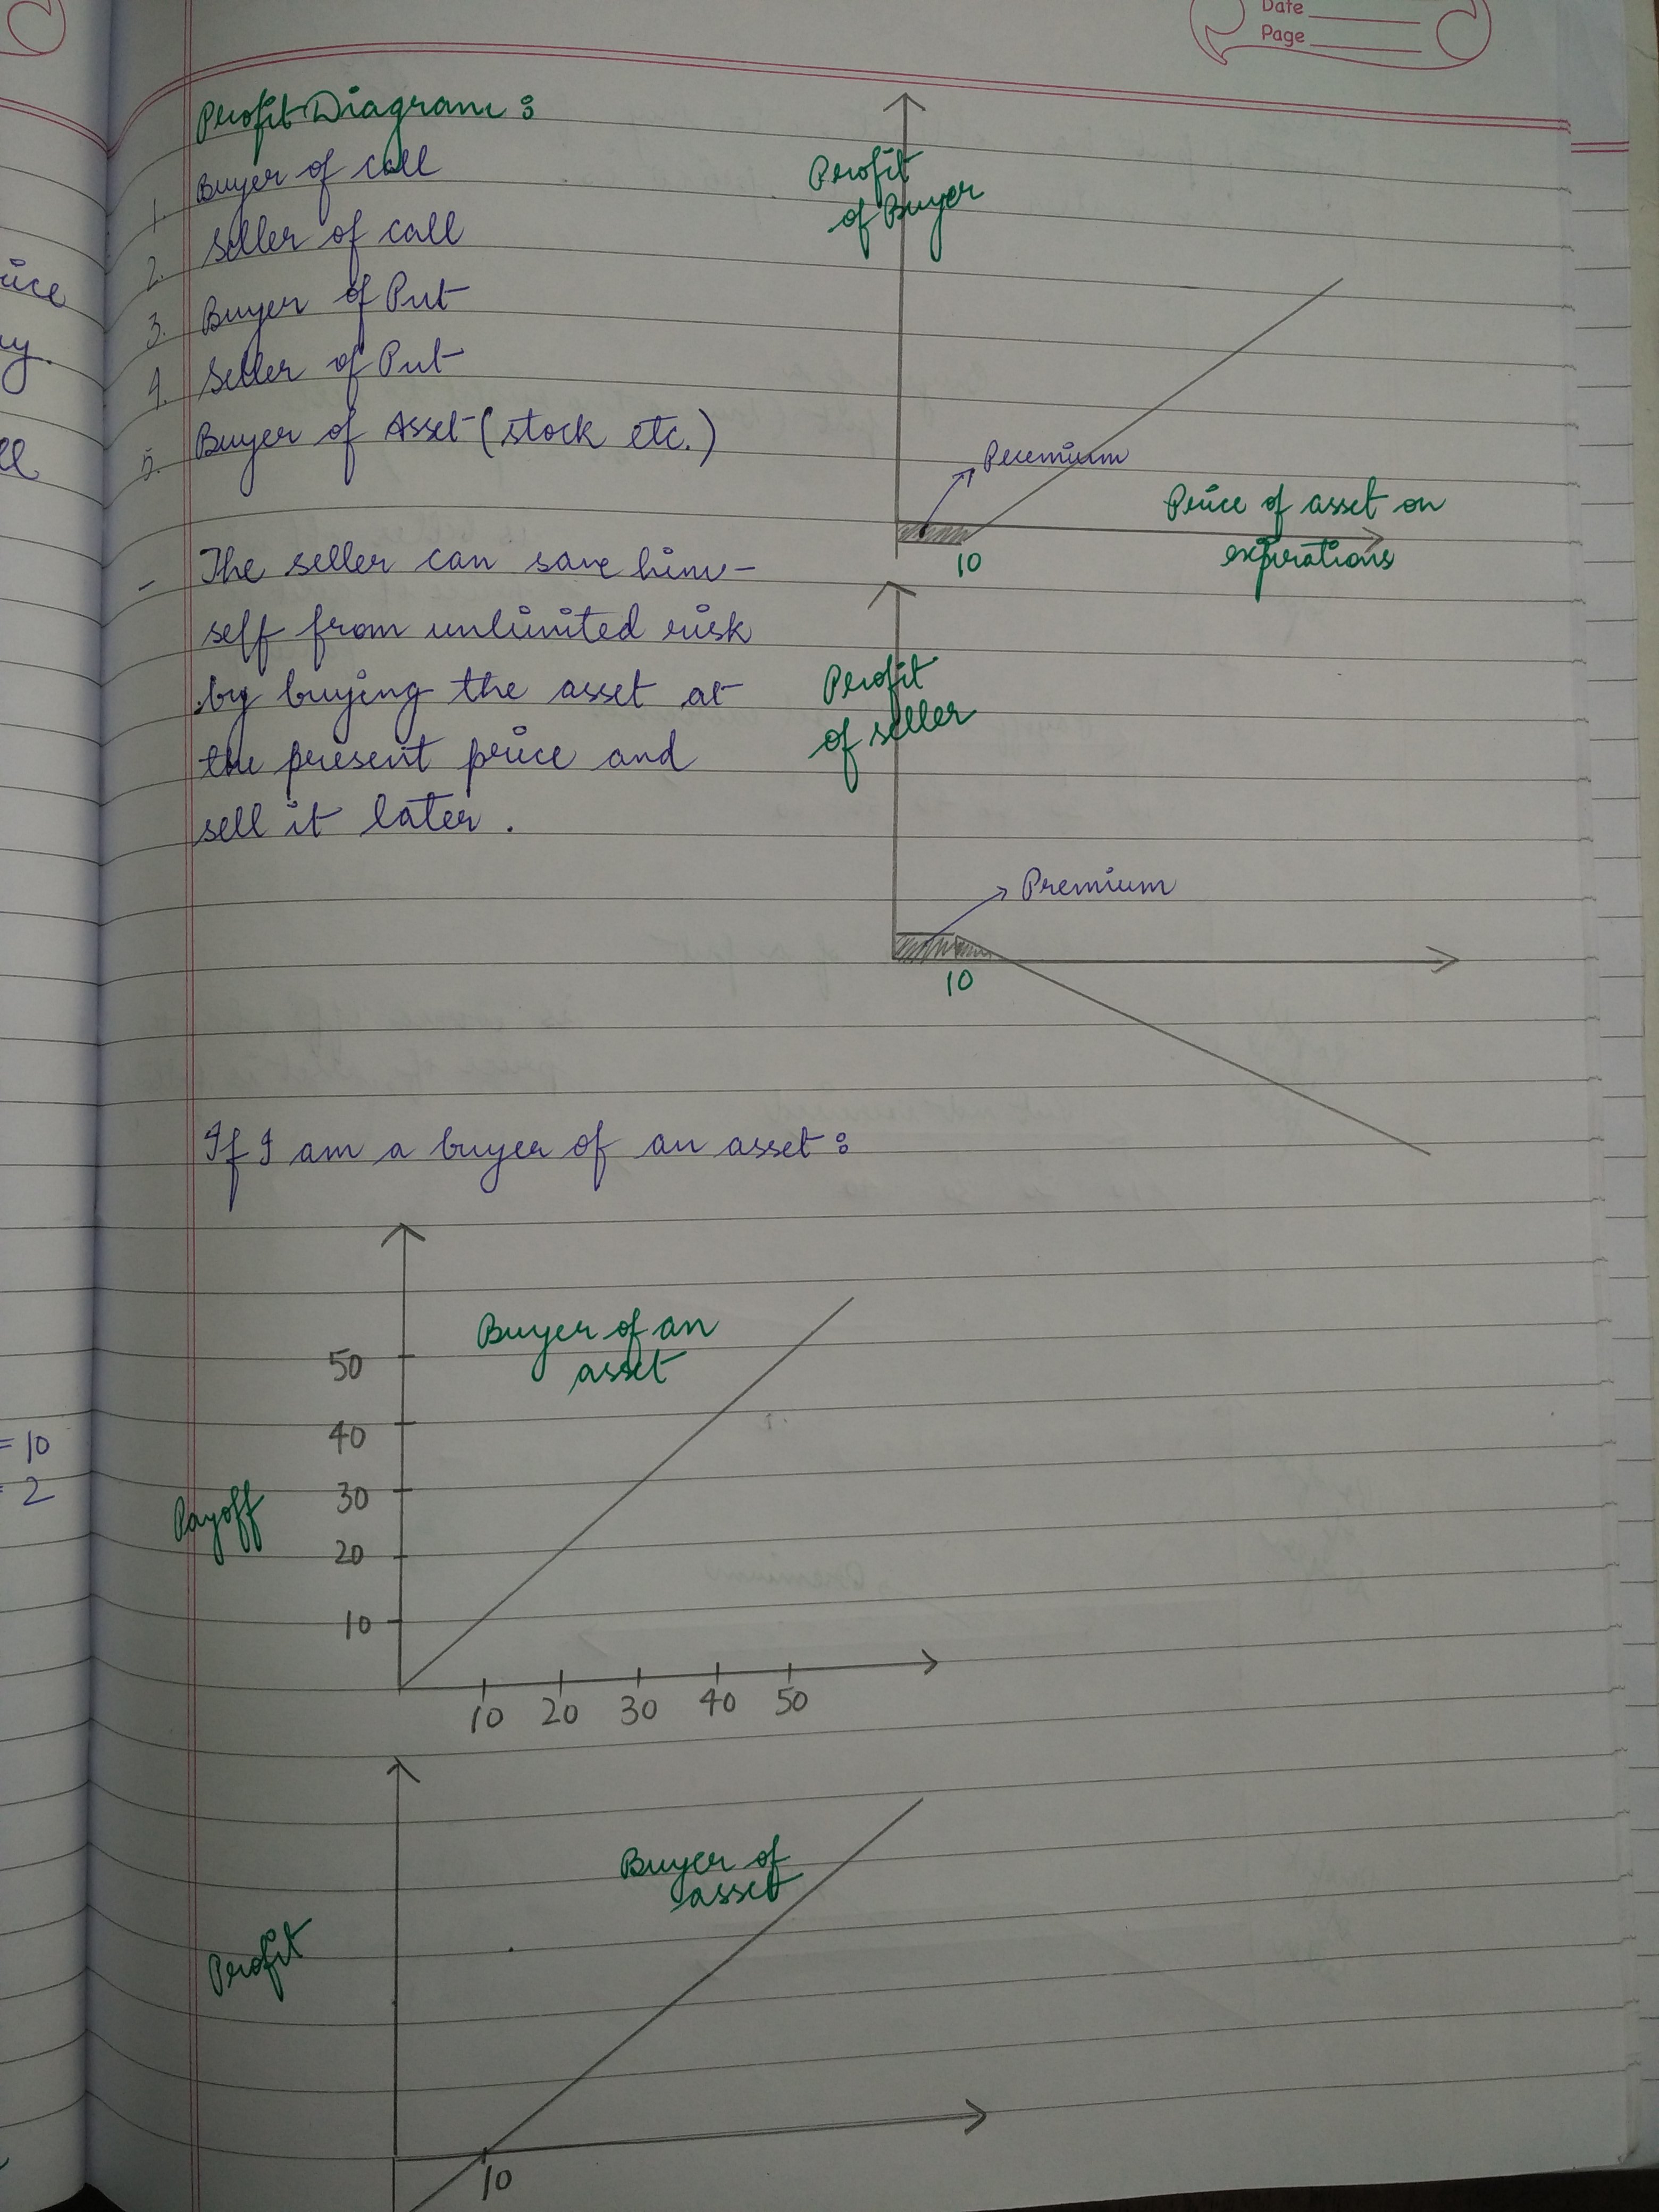 Date
Page
Profit Diagram :
1. Buyer of call
2. Seller of call
3. Buyer of Put
4. Seller of Put
5. Buyer of Asset (stock etc.)
- The seller can save him-
self from unlimited risk
by buying the asset at
the present price and
sell it later.
Profit
of Buyer
Premium
Price of asset on
expirations
10
Profit
of seller
Premium
10
If I am a buyer of an asset :
Buyer of an
asset
50
40
30
20
10
Payoff
10 20 30 40 50
Buyer of
asset
Profit
10
= 10
2